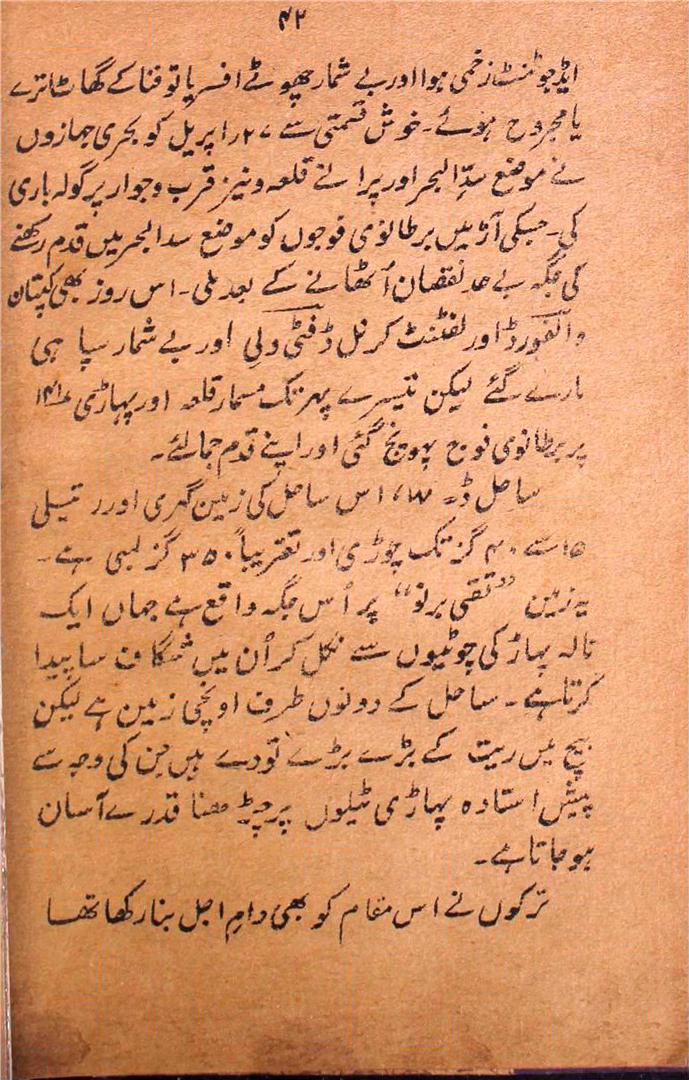 ۴۲
ایڈجوٹنٹ زخمی ہوا اور بے شمار چھوٹے افسر یا تو فنا کے گھاٹ اترے
یا مجروح ہوئے۔ خوش قسمتی سے ۲۷ر اپریل کو بحری جہازوں
نے موضع سدّ البحر اور پرانے قلعہ و نیز قرب و جوار پر گولہ باری
کی۔ جسکی آڑ میں برطانوی فوجوں کو موضع سد البحر میں قدم رکھنے
کی جگہ بے حد نقصان اُٹھانے کے بعد ملی۔ اس روز بھی کپتان
والفورڈ اور لفٹنٹ کرنل ڈفٹی ولی اور بے شمار سپاہی
مارے گئے لیکن تیسرے پہر تک مسمار قلعہ اور پہاڑی ۱۴۱
پر برطانوی فوج پہونچ گئی اور اپنے قدم جمالئے۔
ساحل ڈبلیو اس ساحل کی زمین گہری اور ریتیلی
۱۵ سے ۴۰ گز تک چوڑی اور تقریباً ۳۵۰ گز لمبی ہے۔
یہ زمین ”تقی برنو“ پر اُس جگہ واقع ہے جہاں ایک
نالہ پہاڑ کی چوٹیوں سے نکل کر اُن میں شگاف سا پیدا
کرتا ہے۔ ساحل کے دونوں طرف اونچی زمین ہے لیکن
بیچ میں ریت کے بڑے بڑے تودے ہیں جن کی وجہ سے
پیش استادہ پہاڑی ٹیلوں پر چڑھنا قدرے آسان
ہوجاتا ہے۔
ترکوں نے اس مقام کو بھی دامِ اجل بنا رکھا تھا